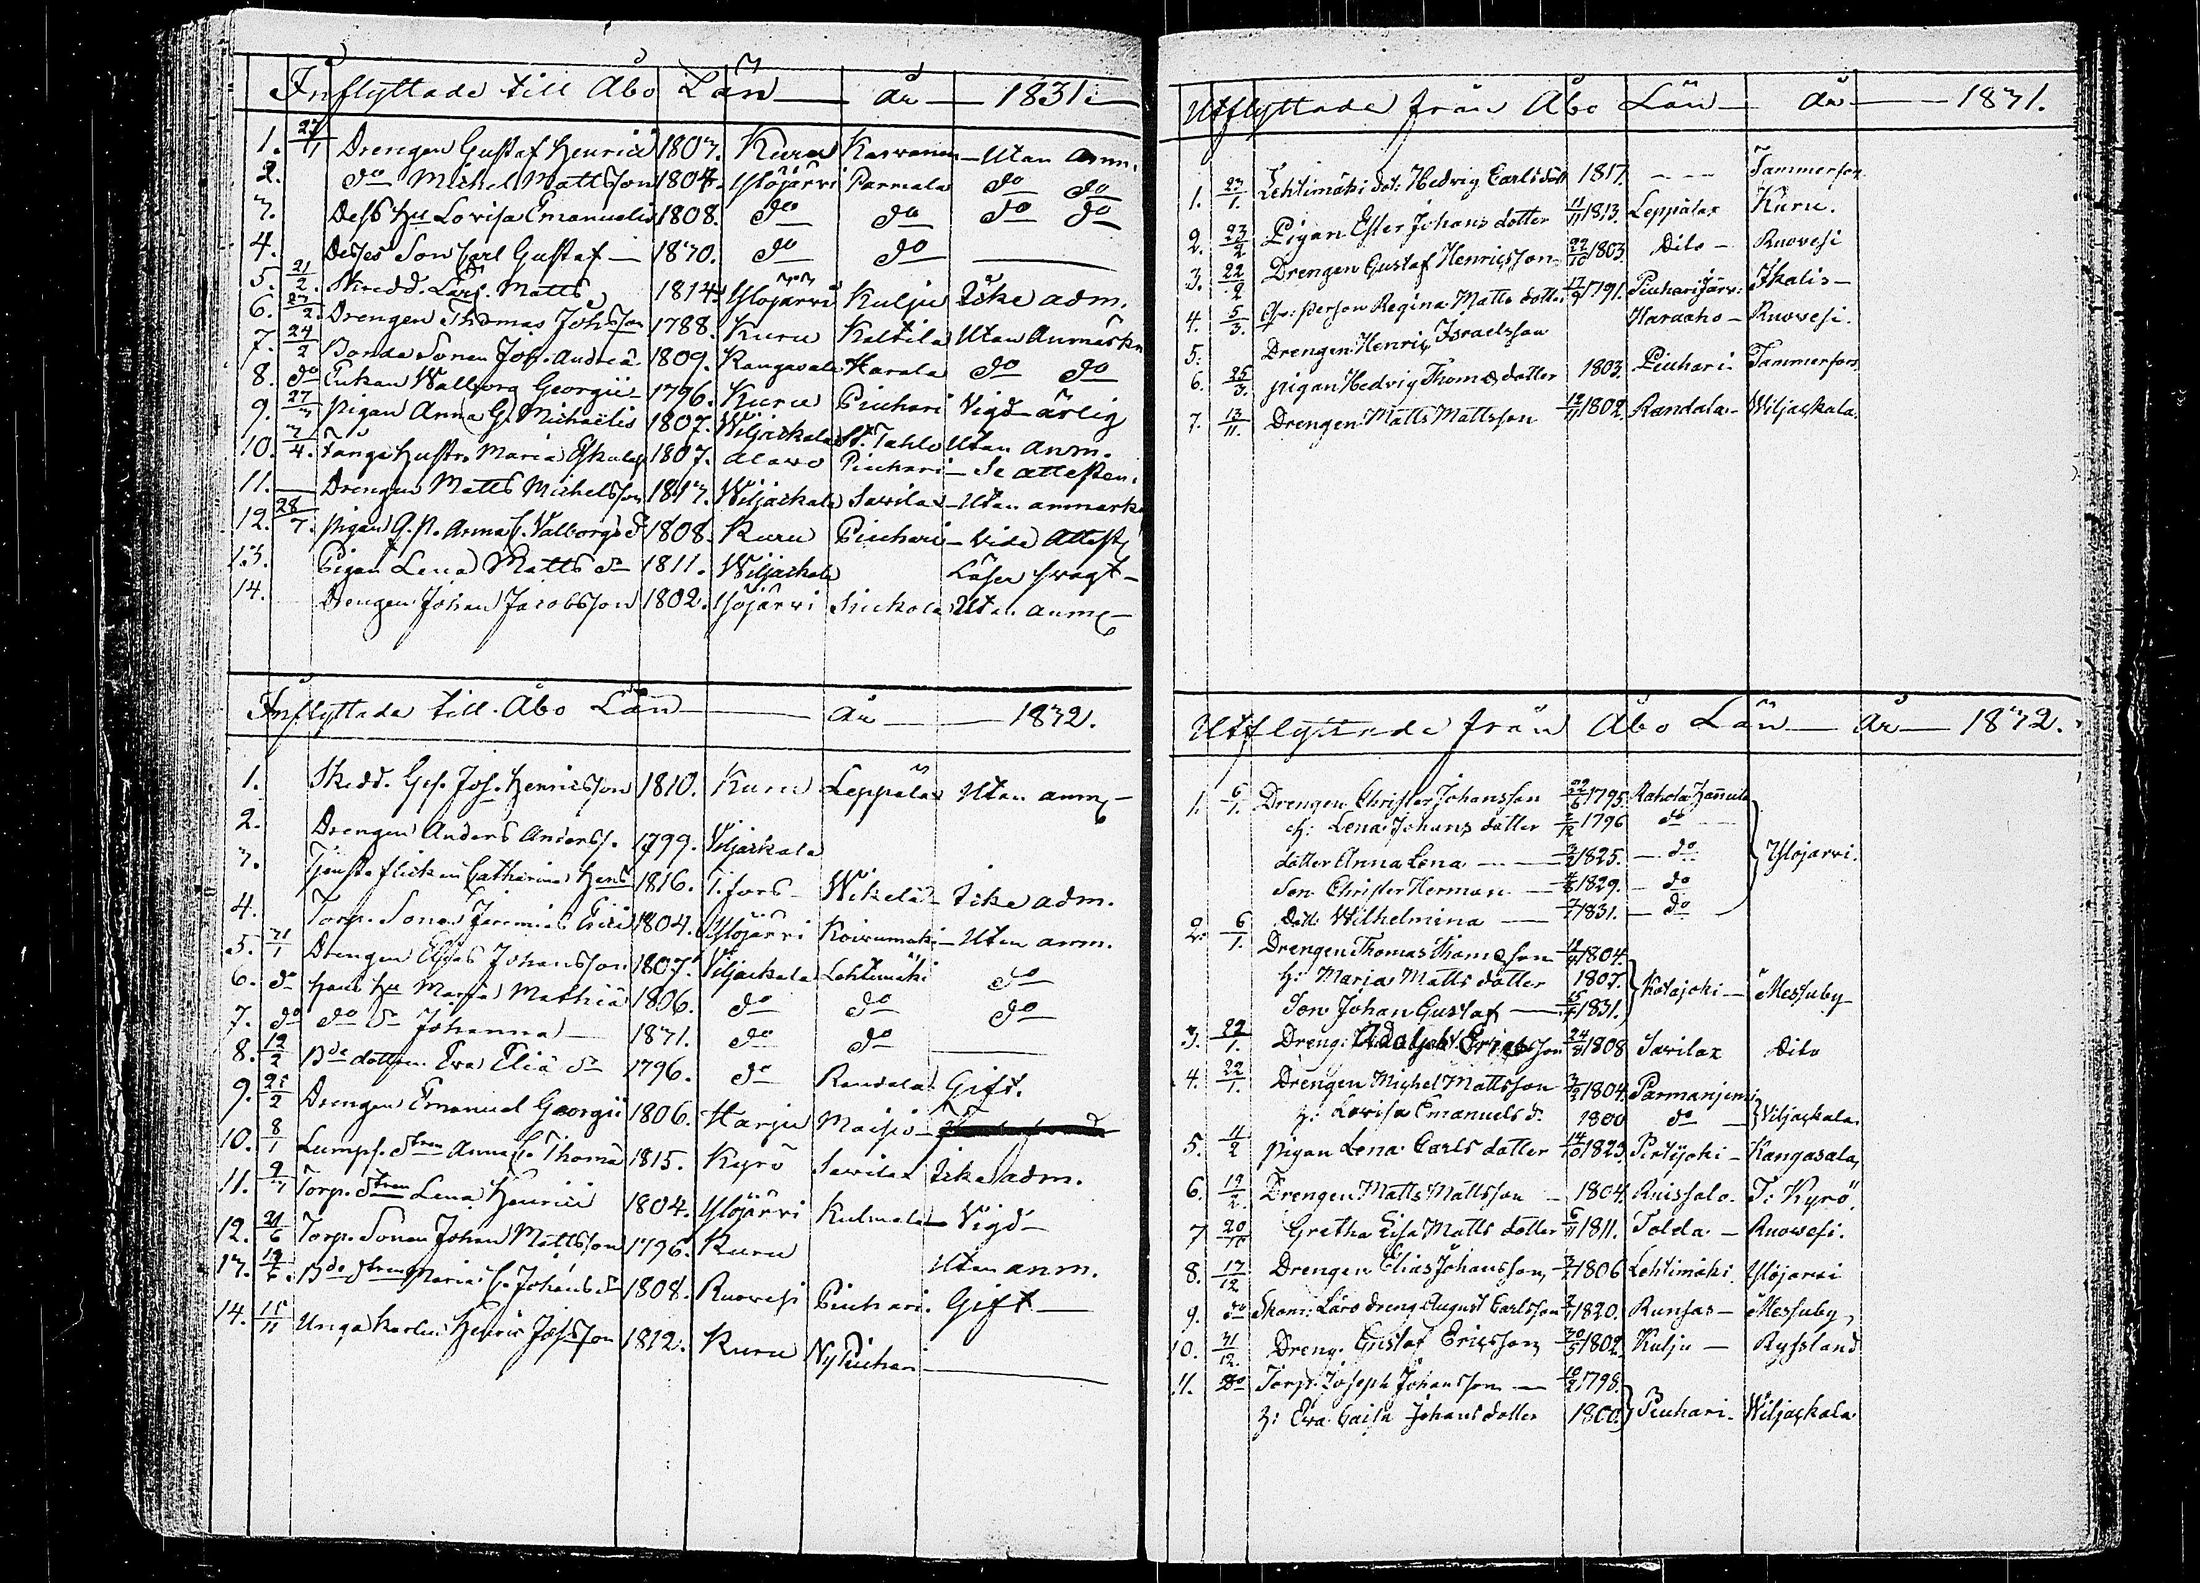 Inflyttade till Åbo Län — år — 1831.
1. 27/1 Drengen Gustaf Henrici 1803. Kuru Karvanen — Utan anm.
2. do Michel Mattsson 1804. Ylöjärvi Parmala do do
3. Dess Hu Lovisa Emanuelis 1808. do do do do
4. Desses Son Carl Gustaf — 1830. do do —
5. 21/2. Skrädd. Lärl. Matts 1814. Ylöjärvi Kulju Icke adm.
6. 27/2. Drengen Thomas Johsson 1788. Kuru Kaltila Utan Anmärkn
7. 24/2 Bonde Sonen Joh. Andreæ 1809. Kangasala Harala do do
8. do Enkan Walborg Georgii — 1796. Kuru Piuhari Vigd — ärlig
9. 27/3 Pigan Anna G. Michaëlis 1807. Wiljackala St. Tahlo Utan anm.
10. 3/4. Hustr. Maria 1807. Alavo Piuhari — Se attesten.
11. — Drengen Matts Michelsson 1813. Wiljackala Savilax — Utan anmärk
12. 28/7. Pigan Q. P. Anna C. Valborgs d 1808. Kuru Piuhari — Vide Attest
13. Pigan Lena Matts dr 1811. Wiljackala Läser svagt —
14. Drengen Johan Jacobsson 1802. Ylöjärvi Siukola Utan anm —
Inflyttade till Åbo Län — år — 1832.
1. Skrdd. Ges. Joh. Henricsson 1810. Kuru Leppälax Utan anm —
2. Drengen Anders Anderss. 1799. Viljackala
3. Tjensteflickan Catharina Hens 1816. T.fors — Wikelä — Icke adm.
4. Torp. Sonen Jeremias Erici 1804. Ylöjärvi Koivumäki — Utan anm.
5. 31/1 Drengen Elias Johansson 1807. Viljackala Lehtimäki do
6. do Hans Hu Maria Mathiæ 1806. do do do
7. do do dr Johanna — 1831. do do —
8. 12/2 Bde dottren Eva Eliæ dr 1796. do Randala Gift.
9. 25/2 Drengen Emanuel Georgii 1806. Harju Maisio —
10. 8/1 Lumps. dtren Anna C. Thomæ 1815. Kyrö Savilax Icke adm.
11. 9/3 Torp. dtren Lena Henrici 1804. Ylöjärvi Kulmala — Vigd —
12. 21/6 Torp. Sonen Johan Mattsson 1796. Kuru Utan anm.
13. 19/6. Bde dtren Maria C. Johans dr 1808. Ruovesi Piuhari. Gift —
14. 15/11 Unga Karlen Henric Johsson 1812. Kuru Ny Piuhari —
Utflyttade från Åbo Län — år — 1831.
1. 23/1. Lehtimäki dot: Hedvig Carlsdott 1817. — — Tammerfors
2. 23/2 Pigan Ester Johans dotter 11/11 1813. Leppälax Kuru.
3. 22/2 Drengen Gustaf Henricsson 22/10 1803. Dito — Ruovesi
4. 5/3. Qv: person Regina Matts dotter 17/9 1791. Piuharijärvi Ikalis —
5. Drengen Henric Israelsson Haraaho — Ruovesi.
6. 25/3. Pigan Hedvig Thomæ dotter 1803. Piuhari — Tammerfors
7. 13/11. Drengen Matts Mattsson 12/11 1802. Randala — Wiljackala.
Utflyttade från Åbo Län — år — 1832.
1. 6/1. Drengen Christer Johansson 22/6 1795. Rahola Hannila
H: Lena Johans dotter 2/12 1796 do —
dotter Anna Lena — — 3/2 1825. — do
Son Christer Herman — 4/8 1829. — do Ylöjärvi.
Dott: Wilhelmina — 7/7 1831. — do
2. 6/1. Drengen Thomas Thomæson 12/7 1804.
h: Maria Matts dotter 1807. Katajoki — Messuby —
Son Johan Gustaf — 1831.
3. 22/1. Dreng: Adolph Ericsson 24/8 1808 Savilax Dito
4. 22/1. Drengen Michel Mattsson 3/2 1804. Parmanjemi
h: Lovisa Emanuels d. 1800 do — Wiljackala.
5. 11/2 Pigan Lena Carls dotter 14/10 1823. Pirtijoki — Kangasala,
6. 19/2. Drengen Matts Mattsson — 1804. Ruissalo. T: Kyrö.
7 20/10 Gretha Lisa Matts dotter 6/11 1811. Tolda — Ruovesi.
8. 17/12 Drengen Elias Johansson 2/7 1806 Lehtimäki. Ylöjärvi
9. do Skom: Läro dreng August Carlsson 1820. Runsas — Messuby,
10. 31/12. Dreng. Gustaf Ericsson 30/5 1802. Kulju — Ryssland
11. do Torp: Joseph Johansson — 10/2 1798.
h: Eva Caisa Johans dotter 1800. Piuhari. Wiljackala